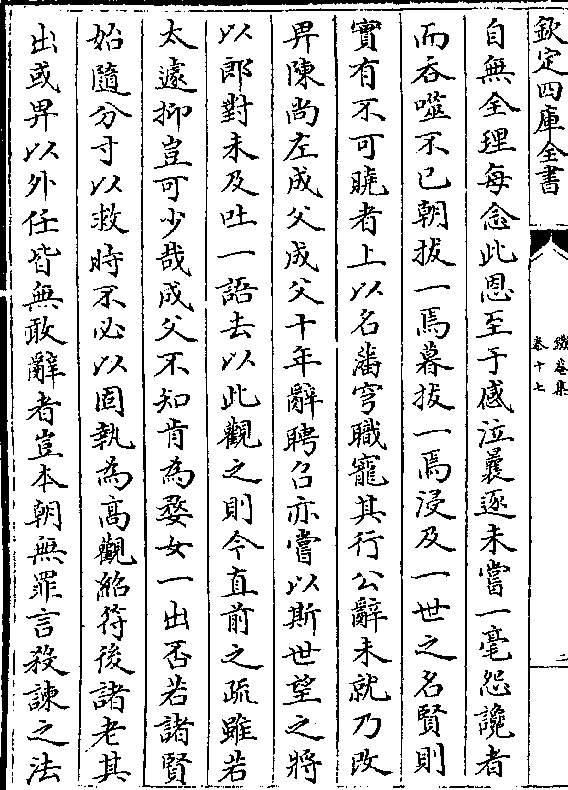 欽定四庫全書
鐵菴集
卷十七
二
自無全理每念此恩至于感泣曩逐未嘗一毫怨讒者
而吞噬不已朝拔一焉暮拔一焉浸及一世之名賢則
實有不可曉者上以名藩穹職寵其行公辭未就乃改
畀陳尚左成父成父十年辭聘召亦嘗以斯世望之將
以郎對未及吐一語去以此觀之則今直前之疏雖若
太遽抑豈可少哉成父不知肯為婺女一出否若諸賢
始隨分寸以救時不必以固執為高觀紹符後諸老其
出或畀以外任皆無敢辭者豈本朝無罪言殺諫之法